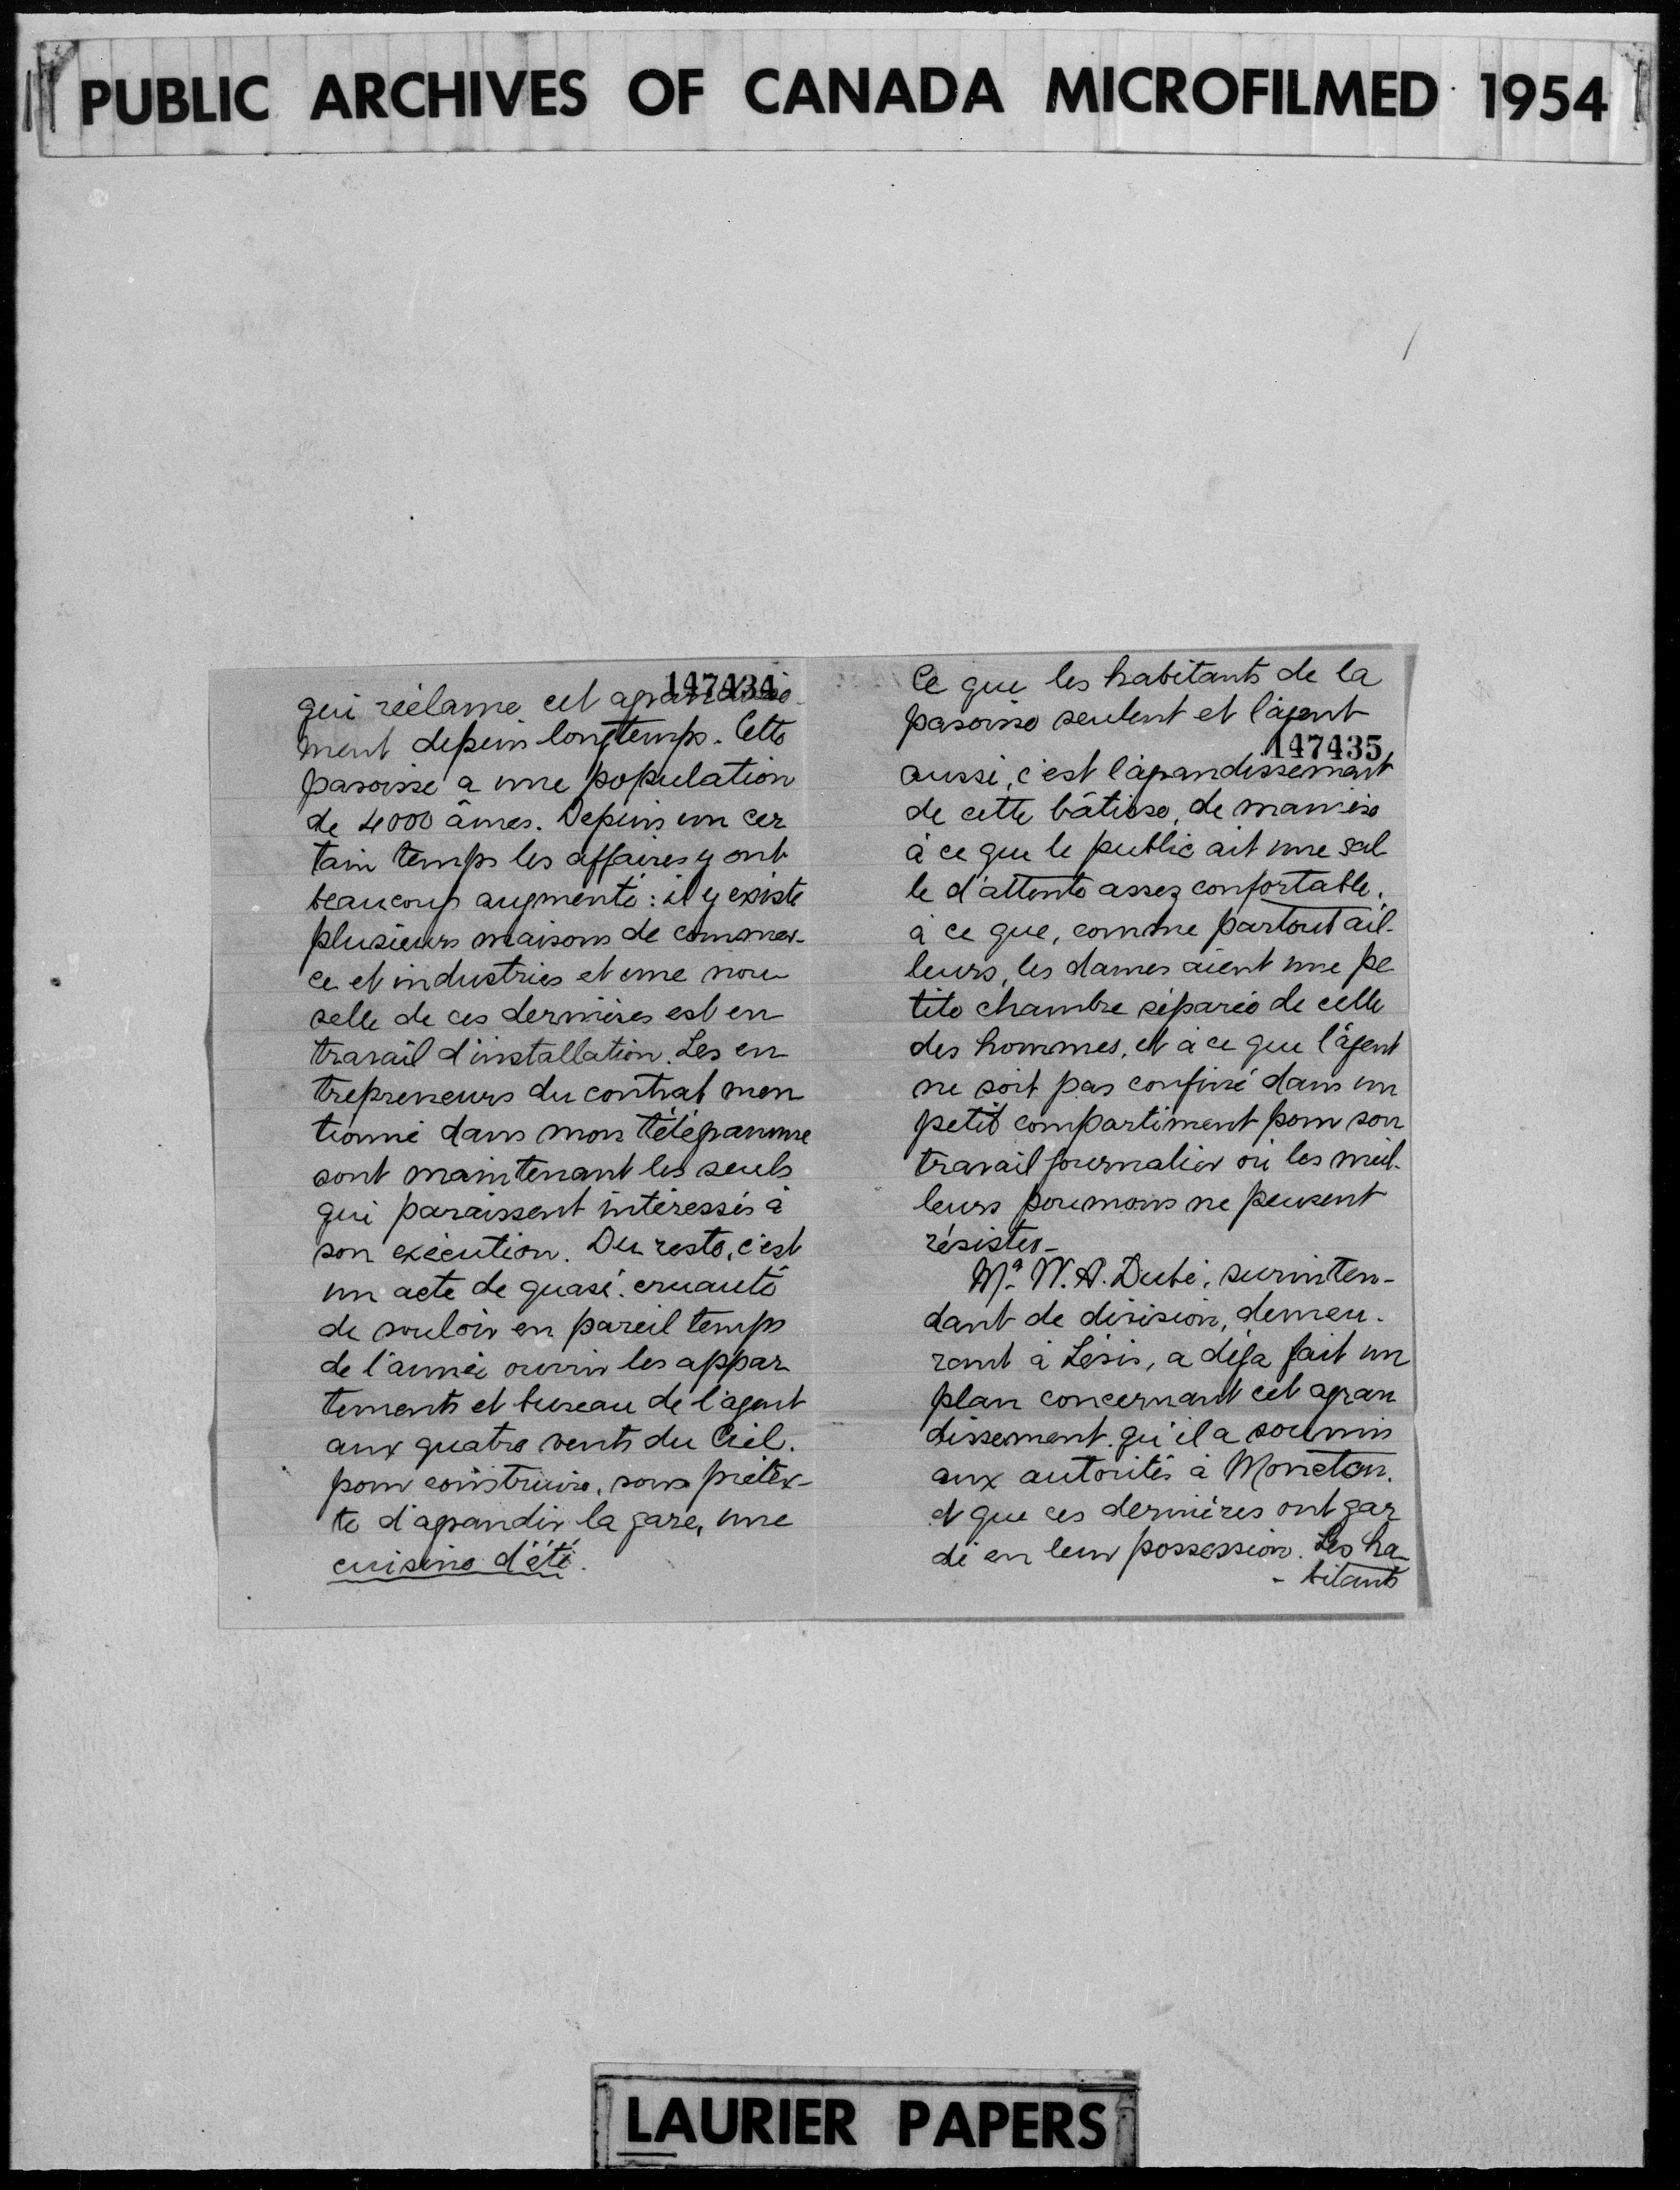 PUBLIC ARCHIVES OF CANADA MICROFILMED 1954
147434
qui réclame cet agrandisse-
ment depuis longtemps. Cette
paroisse a une population
de 4000 âmes. Depuis un cer
tain temps les affaires y ont
beaucoup augmenté : il y existe
plusieurs maisons de commer-
ce et industries et une nou
velle de ces dernières est en
travail d'installation. Les en
trepreneurs du contrat men
tionné dans mon télégramme
sont maintenant les seuls
qui paraissent intéressés à
son exécution. Du reste, c'est
un acte de quasi-cruauté
de vouloir en pareil temps
de l'année ouvrir les appar
tements et bureau de l'agent
aux quatre vents du Ciel.
pour construire, sous prétex-
te d'agrandir la gare, une
cuisine d'été.
Ce que les habitants de la
paroisse veulent et l'agent
147435
aussi, c'est l'agrandissement
de cette bâtisse, de manière
à ce que le public ait une sal
le d'attente assez confortable,
à ce que, comme partout ail-
leurs, les dames aient une pe
tite chambre séparée de celle
des hommes, et à ce que l'agent
ne soit pas confiné dans un
petit compartiment pour son
travail journalier où les meil-
leurs poumons ne peuvent
résister -
Mr. W. A. Dubé, surinten-
dant de division, demeu-
rant à Lévis, a déja fait un
plan concernant cet agran
dissement qu'il a soumis
aux autorités à Moncton.
et que ces dernières ont gar
dé en leur possession. Les ha-
- bitants
LAURIER PAPERS